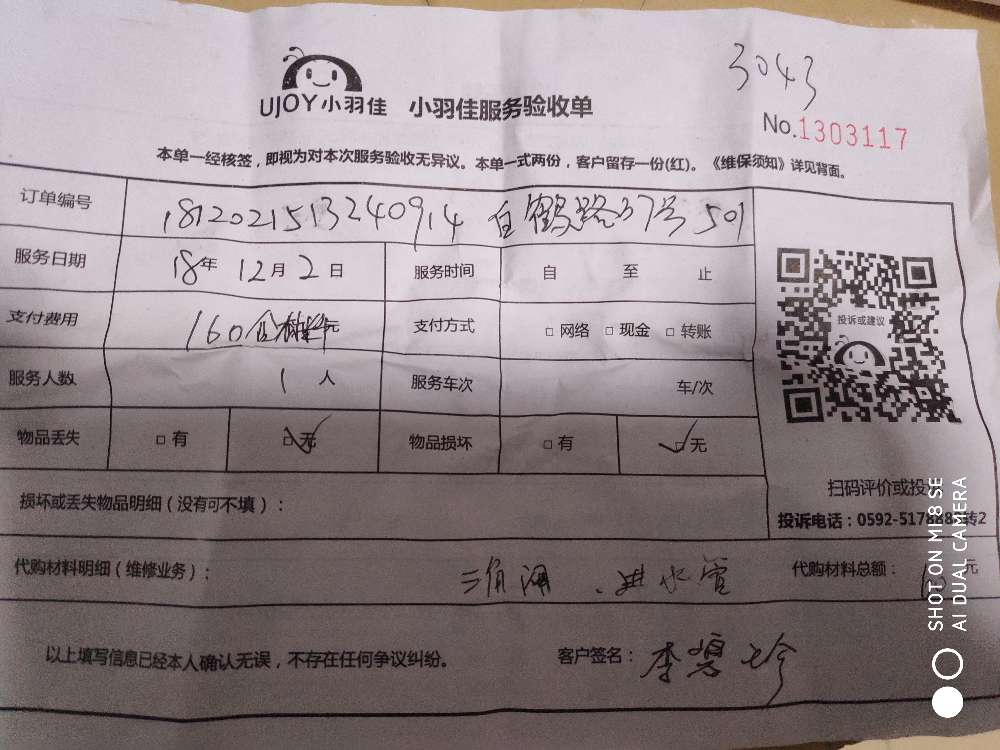 3043
UJOY小羽佳 小羽佳服务验收单
No.1303117
本单一经核签，即视为对本次服务验收无异议。本单一式两份，客户留存一份(红)。《维保须知》详见背面。
订单编号 1812021513240914 白鹤路37号 501
服务日期 18年 12月 2日 服务时间 自 至 止
支付费用 160含材料元 支付方式 □ 网络 □ 现金 □ 转账
投诉或建议
服务人数 1人 服务车次 车/次
物品丢失 □ 有 □ 无 物品损坏 □ 有 □ 无
扫码评价或投
损坏或丢失物品明细（没有可不填）：
投诉电话：0592-517888 转2
代购材料明细（维修业务）： 三角阀、进水管 代购材料总额： 元
以上填写信息已经本人确认无误，不存在任何争议纠纷。 客户签名： 李 珍
SHOT ON MI 8 SE
AI DUAL CAMERA